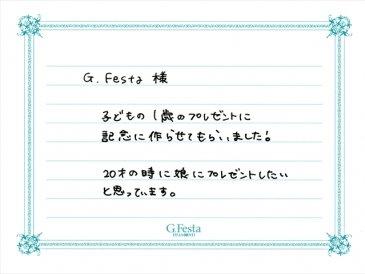 G.Festa 様
子どもの1歳のプレゼントに
記念に作らせてもらいました!
20才の時に娘にプレゼントしたい
と思っています。
G.Festa